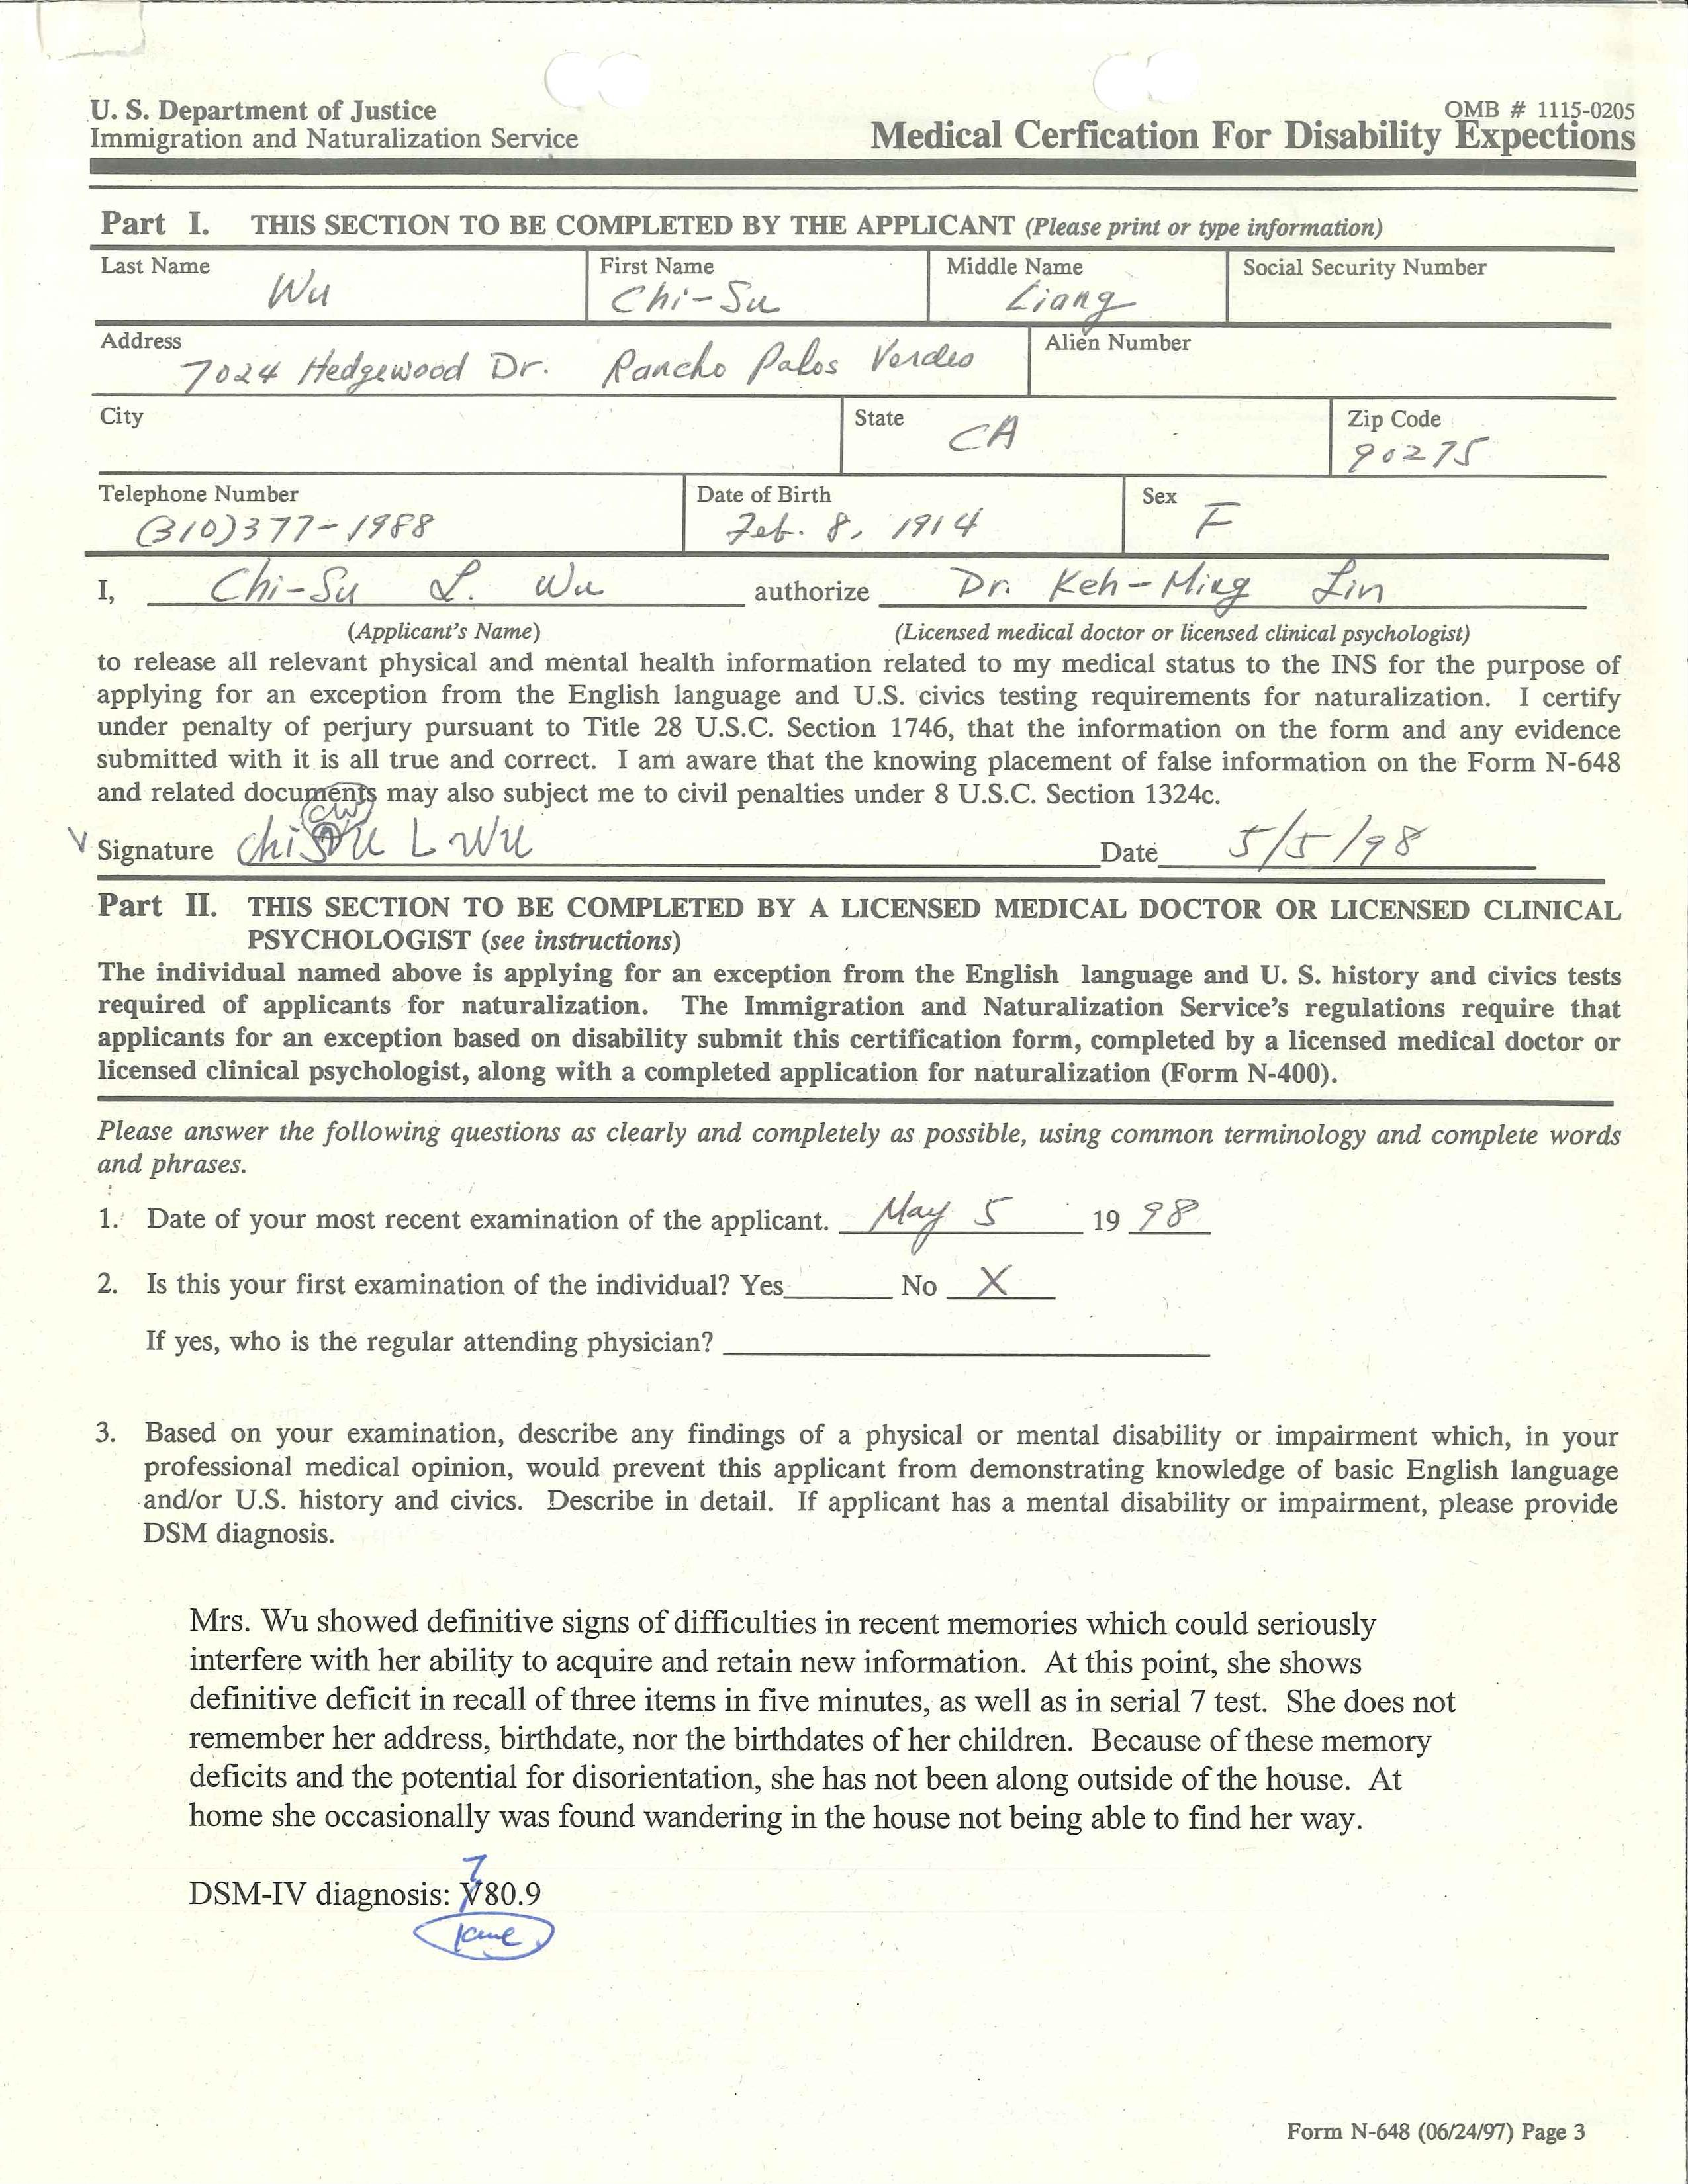 U. S. Department of Justice
Immigration and Naturalization Service
OMB # 1115-0205
Medical Cerfication For Disability Expections
Part I. THIS SECTION TO BE COMPLETED BY THE APPLICANT (Please print or type information)
Last Name First Name Middle Name Social Security Number
Wu Chi-Su Liang
Address Alien Number
7024 Hedgewood Dr. Rancho Palos Verdes
City State Zip Code
CA 90275
Telephone Number Date of Birth Sex
(310)377-1988 Feb. 8, 1914 F
I, Chi-Su L. Wu authorize Dr. Keh-Ming Lin
(Applicant's Name) (Licensed medical doctor or licensed clinical psychologist)
to release all relevant physical and mental health information related to my medical status to the INS for the purpose of
applying for an exception from the English language and U.S. civics testing requirements for naturalization. I certify
under penalty of perjury pursuant to Title 28 U.S.C. Section 1746, that the information on the form and any evidence
submitted with it is all true and correct. I am aware that the knowing placement of false information on the Form N-648
and related documents may also subject me to civil penalties under 8 U.S.C. Section 1324c.
CW
Signature Chi Su L Wu Date 5/5/98
Part II. THIS SECTION TO BE COMPLETED BY A LICENSED MEDICAL DOCTOR OR LICENSED CLINICAL
PSYCHOLOGIST (see instructions)
The individual named above is applying for an exception from the English language and U. S. history and civics tests
required of applicants for naturalization. The Immigration and Naturalization Service's regulations require that
applicants for an exception based on disability submit this certification form, completed by a licensed medical doctor or
licensed clinical psychologist, along with a completed application for naturalization (Form N-400).
Please answer the following questions as clearly and completely as possible, using common terminology and complete words
and phrases.
1. Date of your most recent examination of the applicant. May 5 19 98
2. Is this your first examination of the individual? Yes No X
If yes, who is the regular attending physician?
3. Based on your examination, describe any findings of a physical or mental disability or impairment which, in your
professional medical opinion, would prevent this applicant from demonstrating knowledge of basic English language
and/or U.S. history and civics. Describe in detail. If applicant has a mental disability or impairment, please provide
DSM diagnosis.
Mrs. Wu showed definitive signs of difficulties in recent memories which could seriously
interfere with her ability to acquire and retain new information. At this point, she shows
definitive deficit in recall of three items in five minutes, as well as in serial 7 test. She does not
remember her address, birthdate, nor the birthdates of her children. Because of these memory
deficits and the potential for disorientation, she has not been along outside of the house. At
home she occasionally was found wandering in the house not being able to find her way.
7
DSM-IV diagnosis: V80.9
Form N-648 (06/24/97) Page 3